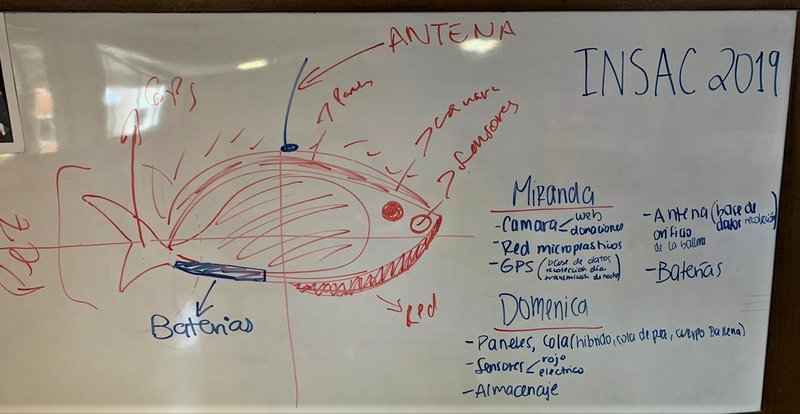 ANTENA
INSAC 2019
GPS
Paneles
camara
Sensores
Red
Baterias
Miranda
- Camara < web
donaciones
- Red microplasticos
- GPS (base de datos,
recolección día
transmisión de noche)
- Antena (base de
datos recolección)
orificio
de la ballena
- Baterías
Domenica
- Paneles, cola (híbrido, cola de pez, cuerpo Ballena)
- Sensores < rojo
eléctrico
- Almacenaje